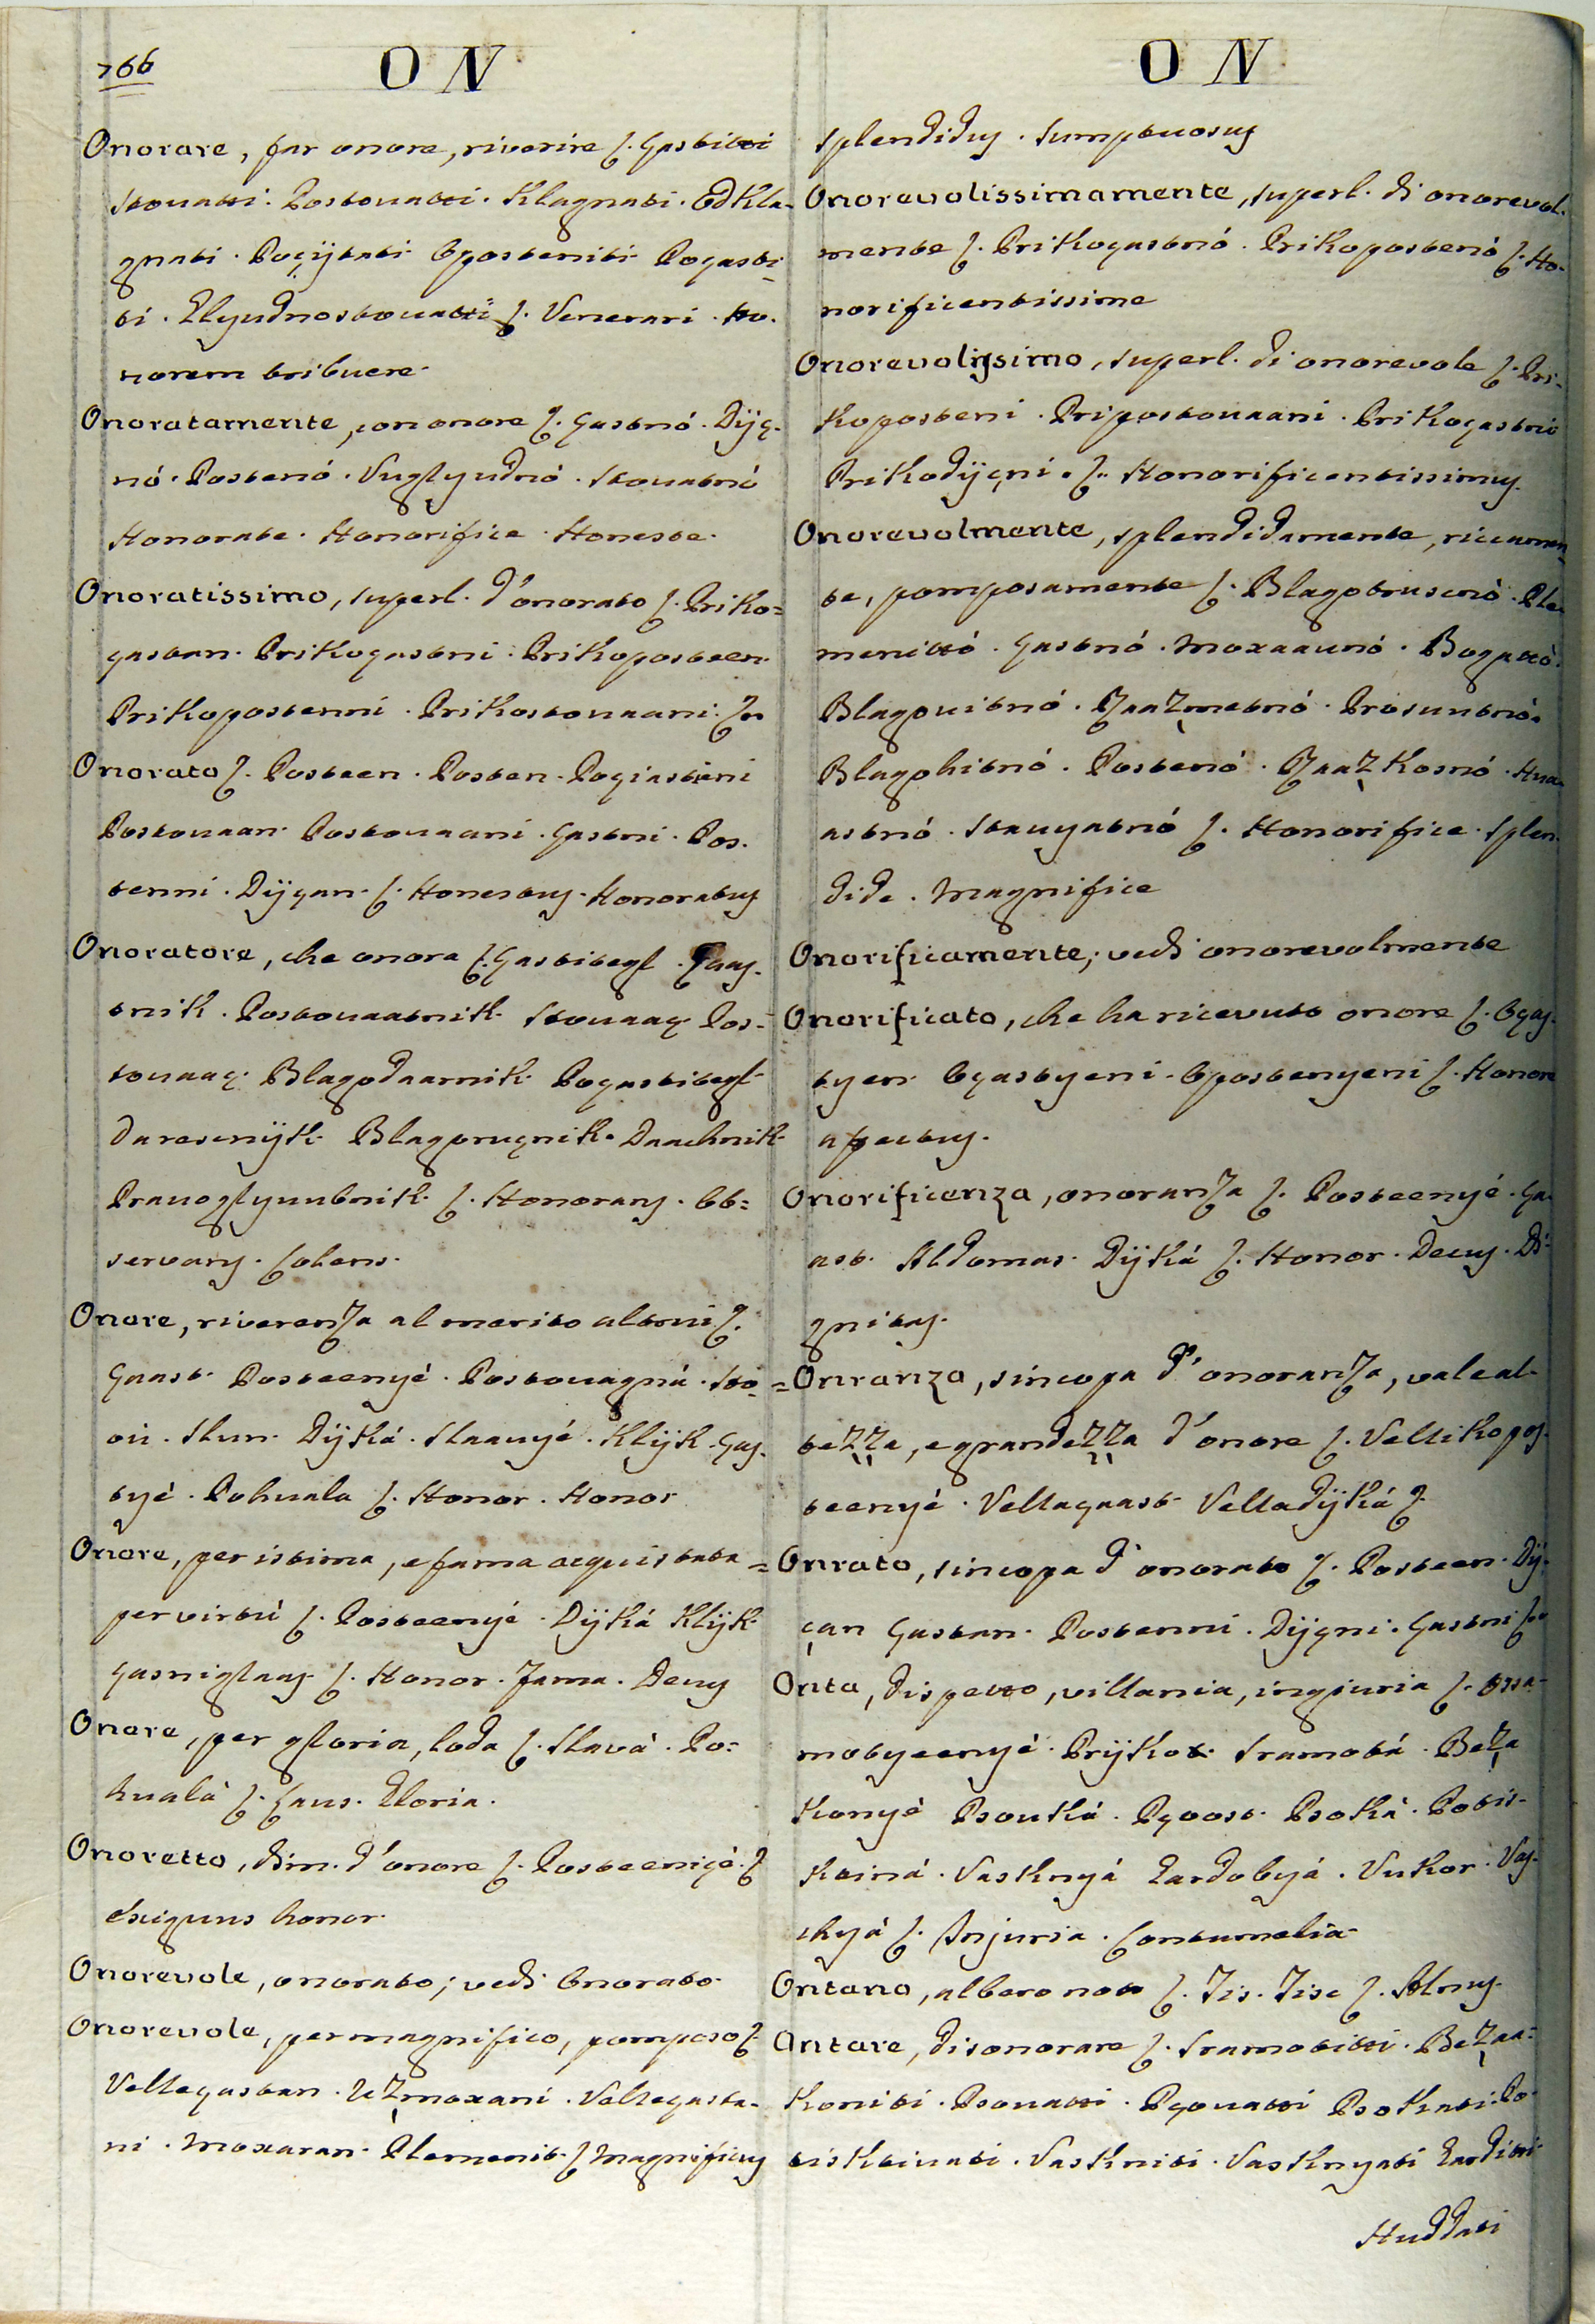 766
ON
Onorare, far onore, riverire ſ. Çastitti
Stovatti. Postovatti. Klagnati. Odkla-
gnati. Poçÿtati. Oposteniti. Poçasti-
ti. Elyudnostovatti ſ. Venerari. Ho-
norem tribuere.
Onoratamente, con onore ſ. Çastnó. Dÿç-
nó. Postenó. Vuglyudnó. Stovatnó
Honorate. Honorifice. Honeste.
Onoratissimo, superl. d'onorato ſ. Priko=
çastan. Prikoçastni. Prikoposteen.
Prikopostenni. Prikostovaani. ſ.
Onorato ſ. Posteen. Posten. Poçiastiani
Postovaan. Postovaani. Çastni. Pos-
tenni. Dÿçan. ſ. Honestus. Honoratus
Onoratore, che onora ſ. Çastitegl. Çaas-
tnik. Postovaatnik. Stovaaç. Pos-
tovaaç. Blagodaarnik. Poçastitegl
Darescnÿk. Blagoruçnik. Daachnik
Pravoglyuubnik. ſ. Honorans. Ob=
servans. Colens.
Onore, riverenza al merito altrui ſ.
Çaast. Posteenyé. Postovagná. Sto-
ou. Slun. Dÿká. Slaavyé. Klÿk. Ças-
tyé. Pohvala ſ. Honor. Honor
Onore, per istima, e fama acquistata
per virtù ſ. Posteenyé. Dÿká Klÿk.
Çasniglaas ſ. Honor. Fama. Decus
Onore, per gloria, loda ſ. Slavà. Po=
hvalà ſ. Laus. Gloria.
Onoretto, dim. d'onore ſ. Posteeniçé. ſ
Exiguus honor.
Onorevole, onorato; vedi Onorato.
Onorevole, per magnifico, pomposo ſ.
Velleçastan. Uzmoxani. Velleçasta-
ni. Moxaran. Plemenit. ſ Magnificus
ON
Splendidus. Sumptuosus
Onorevolissimamente, superl. di onorevol-
mente ſ. Prikoçastnó. Prikopostenó ſ. Ho-
norificentissime
Onorevolissimo, superl. di onorevole ſ. Pri-
koposteni. Pripostovaani. Prikoçastni
Prikodÿçni. ſ. Honorificentissimus.
Onorevolmente, splendidamente, riccamen-
te, pomposamente ſ. Blagotrusnò. Ple-
menittó. Çastnó. Moxaarnó. Bogattó.
Blagovitnó. Zaazmetnó. Prosuntnó.
Blagohitnó. Postenó. Zaazkosnó. Hva-
astnó. Stavyatnó ſ. Honorifice. Splen-
dide. Magnifice
Onorificamente; vedi onorevolmente
Onorificato, che ha ricevuto onore ſ. Oças-
tyen. Oçastyeni. Opostenyeni ſ. Honore
affectus.
Onorificenza, onoranza ſ. Posteenyé. Ça-
ast. Aldomas. Dÿká ſ. Honor. Decus. Di-
gnitas.
=Onranza, sincopa d'onoranza, vale al-
tezza, e grandezza d'onore ſ. Vellikopos-
teenyé. Velleçaast. Velledÿká ſ.
=Onrato, sincopa d'onorato ſ. Posteen. Dÿ-
çan Çastan. Postenni. Dÿçni. Çastni ſ.
Onta, dispetto, villania, ingiuria ſ. Ossa-
motyeenyé. Prÿkor. Sramotá. Beza
konyé Psovká. Pçoost. Psoká. Potis-
ktiná. Vasknyá Eardobyá. Vukor. Vas-
chyá ſ. Injuria. Contumelia
Ontano, albero noto ſ. Jis. Jise ſ. Alnus.
Ontare, disonorare ſ. Sramotitti. Bezaa=
koniti. Psovatti. Pçovatti Psokati. Po-
tisktivati. Vaskniti. Vasknyati Earditti
Huddati